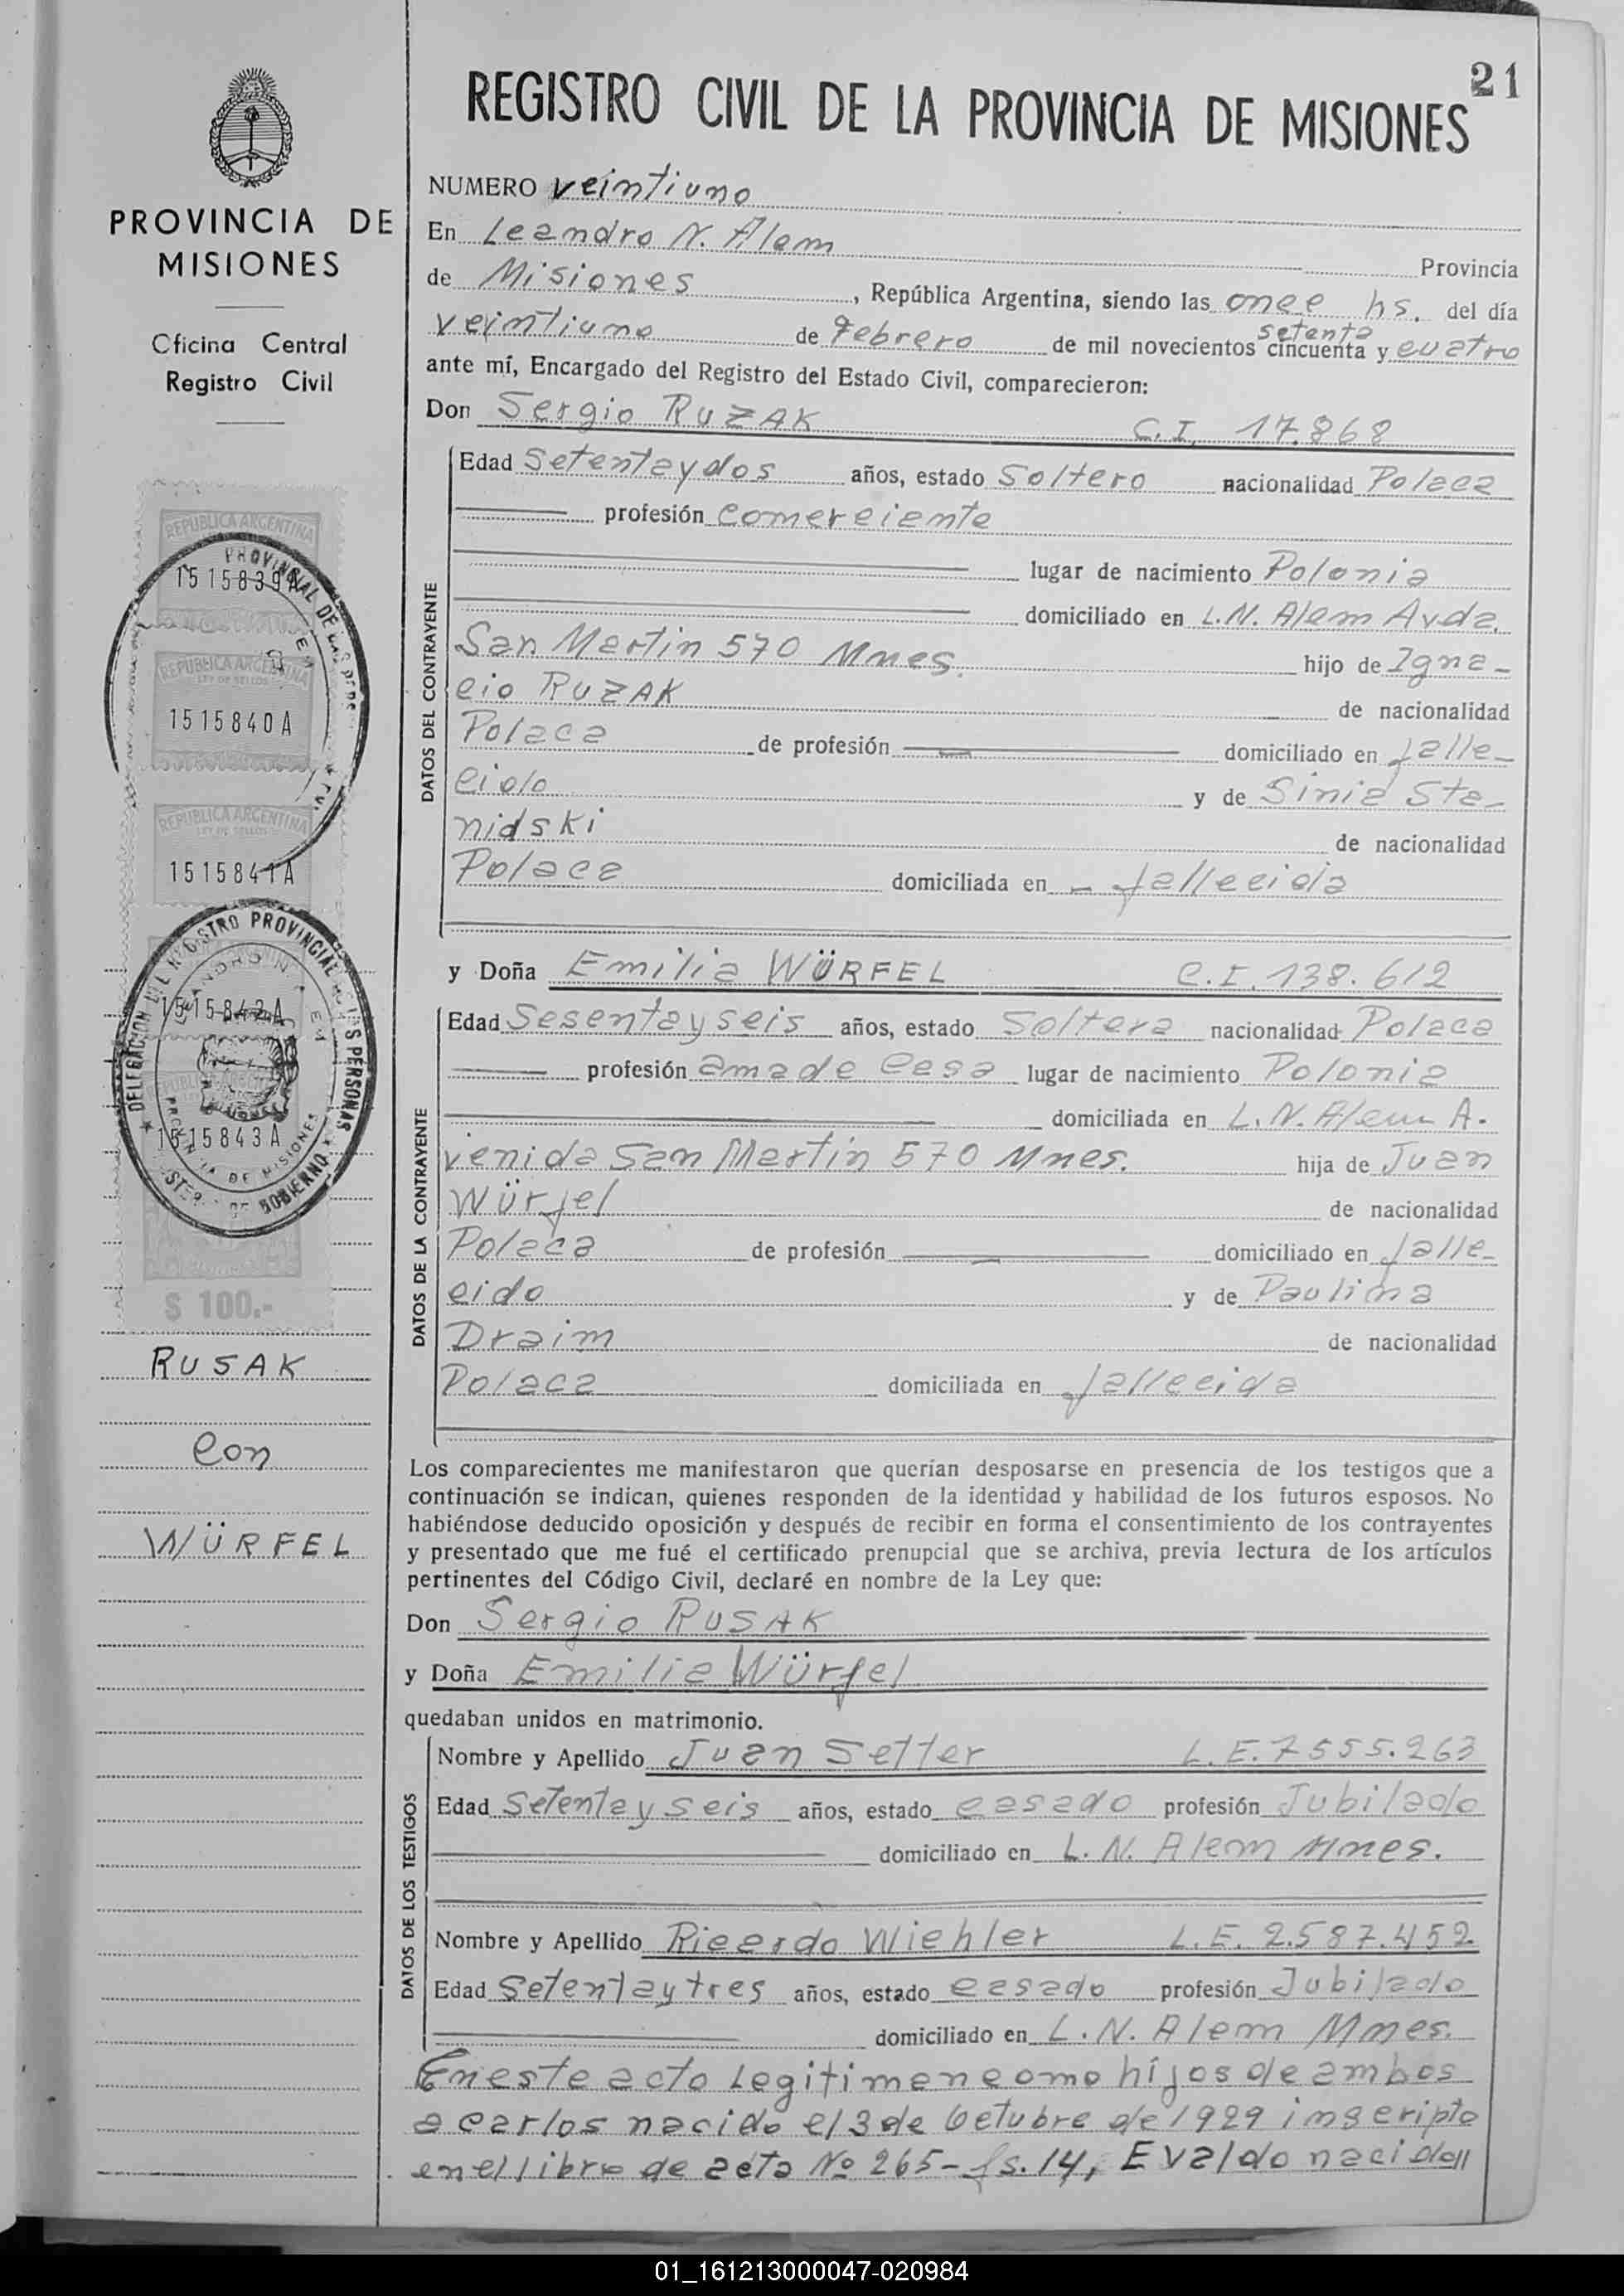 21
REGISTRO CIVIL DE LA PROVINCIA DE MISIONES
PROVINCIA DE
MISIONES
Oficina Central
Registro Civil
REPUBLICA ARGENTINA
1515839A
REPUBLICA ARGENTINA
LEY DE SELLOS
1515840A
REPUBLICA ARGENTINA
LEY DE SELLOS
1515841A
1515842A
1515843A
$ 100.-
RUSAK
con
WÜRFEL
NUMERO veintiuno
En Leandro N. Alem Provincia
de Misiones, República Argentina, siendo las once hs. del día
veintiuno de Febrero de mil novecientos cincuenta setenta y cuatro
ante mí, Encargado del Registro del Estado Civil, comparecieron:
Don Sergio RUZAK C.I. 17.868
DATOS DEL CONTRAYENTE
Edad Setentaydos años, estado Soltero nacionalidad Polaca
profesión comerciante
lugar de nacimiento Polonia
domiciliado en L.N. Alem Avda.
San Martin 570 Mnes. hijo de Igna-
cio RUZAK de nacionalidad
Polaca de profesión domiciliado en falle-
cido y de Sinia Sta-
nidski de nacionalidad
Polaca domiciliada en - fallecida
y Doña Emilia WÜRFEL C.I. 138.612
DATOS DE LA CONTRAYENTE
Edad Sesentayseis años, estado Soltera nacionalidad Polaca
profesión ama de casa lugar de nacimiento Polonia
domiciliada en L.N. Alem A-
venida San Martin 570 Mnes. hija de Juan
Würfel de nacionalidad
Polaca de profesión domiciliado en falle-
cido y de Paulina
Draim de nacionalidad
Polaca domiciliada en fallecida
Los comparecientes me manifestaron que querían desposarse en presencia de los testigos que a
continuación se indican, quienes responden de la identidad y habilidad de los futuros esposos. No
habiéndose deducido oposición y después de recibir en forma el consentimiento de los contrayentes
y presentado que me fué el certificado prenupcial que se archiva, previa lectura de los artículos
pertinentes del Código Civil, declaré en nombre de la Ley que:
Don Sergio RUSAK
y Doña Emilia Würfel
quedaban unidos en matrimonio.
DATOS DE LOS TESTIGOS
Nombre y Apellido Juan Setter L.E. 7555.263
Edad Setentayseis años, estado casado profesión Jubilado
domiciliado en L. N. Alem Mnes.
Nombre y Apellido Ricardo Wiehler L.E. 2.587.452
Edad Setentaytres años, estado casado profesión Jubilado
domiciliado en L. N. Alem Mnes.
En este acto Legitiman como hijos de ambos
a Carlos nacido el 3 de Octubre de 1929 inscripto
en el libro de acta Nº 265- fs. 14, Evaldo nacido//
01_161213000047-020984